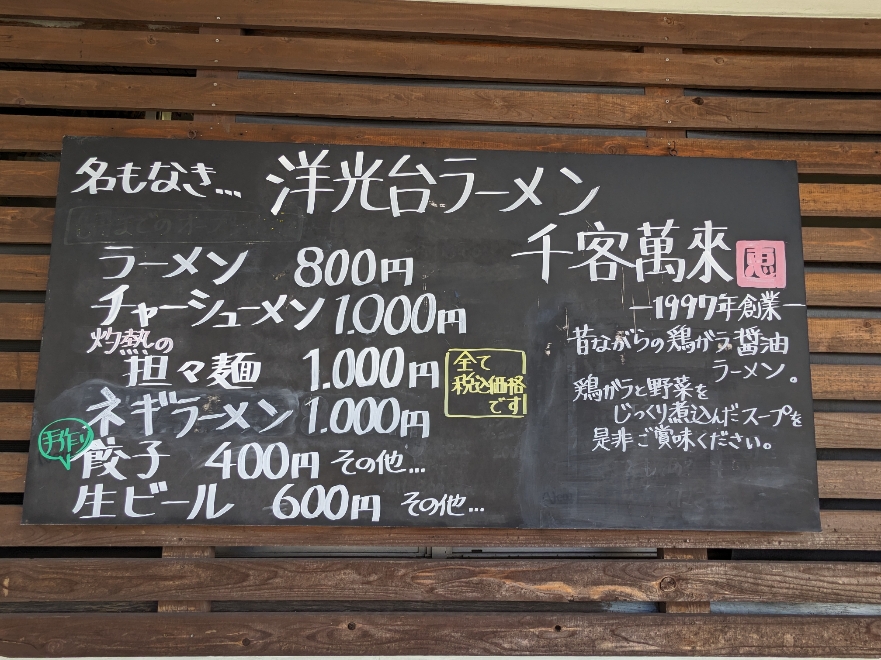 名もなき… 洋光台ラーメン
千客萬來 恵
ラーメン 800円
チャーシューメン 1.000円
灼熱の
担々麺 1.000円
ネギラーメン 1.000円
手作り
餃子 400円 その他…
生ビール 600円 その他…
全て
税込価格
です
―1997年創業―
昔ながらの鶏ガラ醤油
ラーメン。
鶏ガラと野菜を
じっくり煮込んだスープを
是非ご賞味ください。